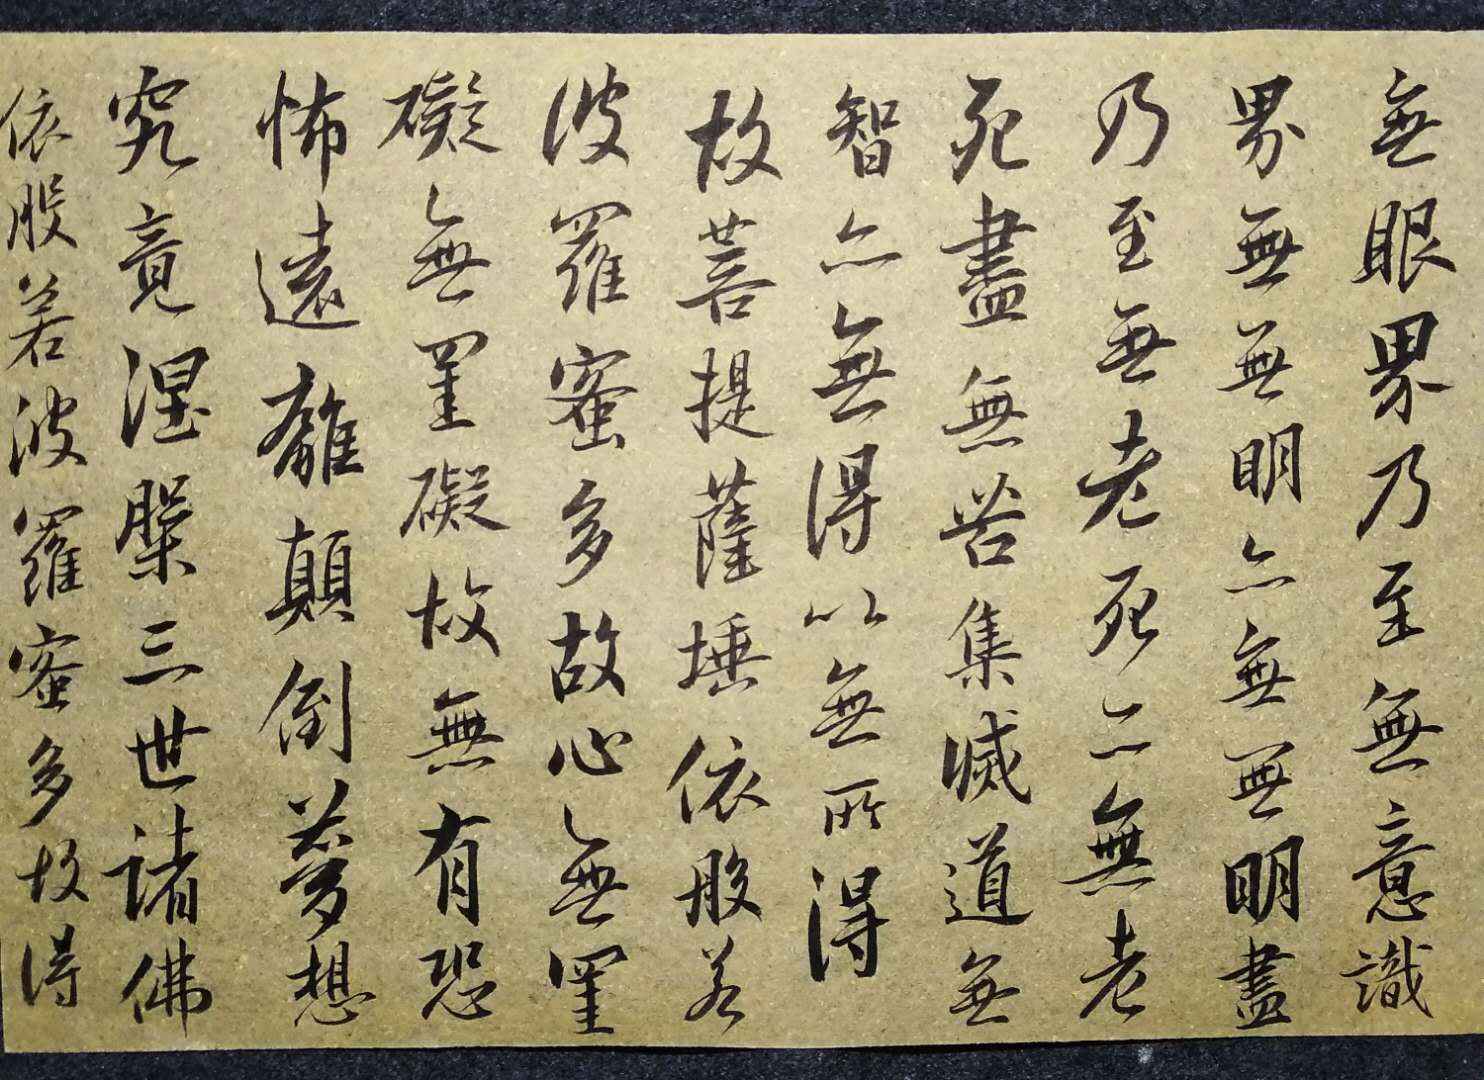 無眼界乃至無意識
界無無明亦無無明盡
乃至無老死亦無老
死盡無苦集滅道無
智亦無得以無所得
故菩提薩埵依般若
波羅蜜多故心無罣
礙無罣礙故無有恐
怖遠離顛倒夢想
究竟涅槃三世諸佛
依般若波羅蜜多故得